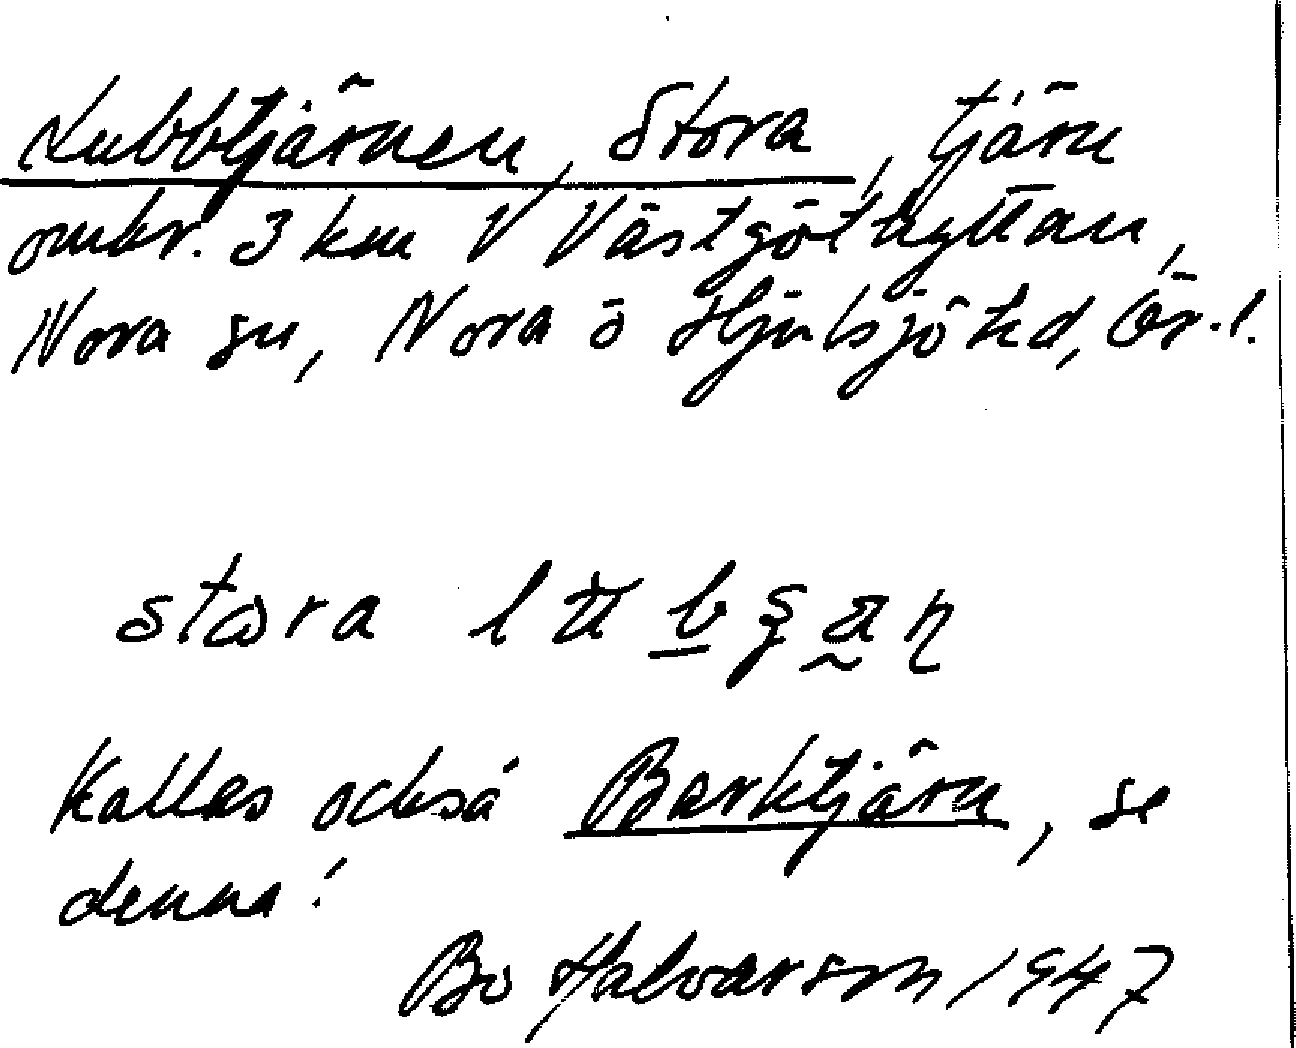 Lubbtjärnen, Stora, tjärn
omkr. 3 km V Västgöthyttan,
Nora sn, Nora o Hjulsjö hd, Ör. l.
stɷra lu̇b̲ʂa̰ɳ
Kallas också Barktjärn, se
denna!
Bo Halvarson 1947